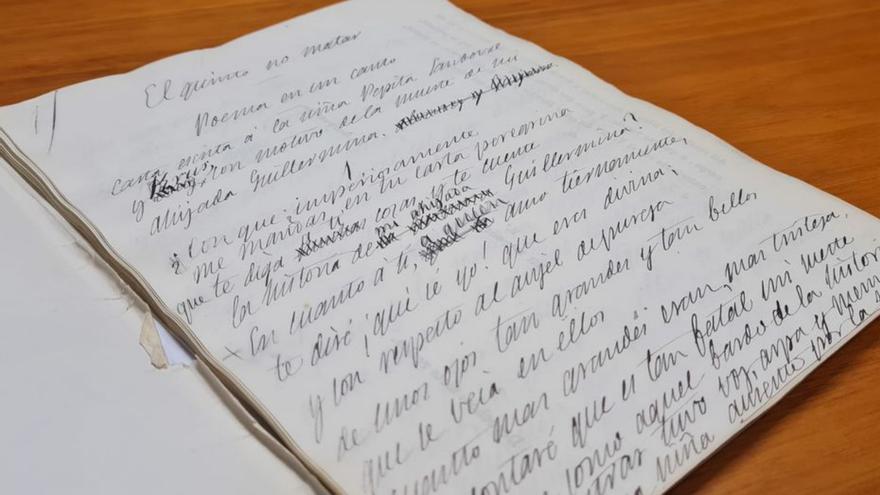 El quinto no matar
Poema en un canto
Carta escrita á la niña Pepita Sandoval
y Brus, con motivo de la muerte de mi
ahijada Guillermina.
¿Con que imperiosamente
me mandas, en tu carta peregrina
que te diga á ti cosas, y te cuente
la historia de mi ahijada Guillermina?
En cuanto á ti, á quien amo tiernamente,
te diré ¡qué sé yo! que eres divina;
y con respeto al anjel de pureza
de unos ojos tan grandes y tan bellos
que se veia en ellos
cuanto mas grandes eran, mas tristeza,
contaré que es tan fatal mi suerte
como aquel bardo de la histori
tras tuvo voz, arpa y mem
niña ausente por la